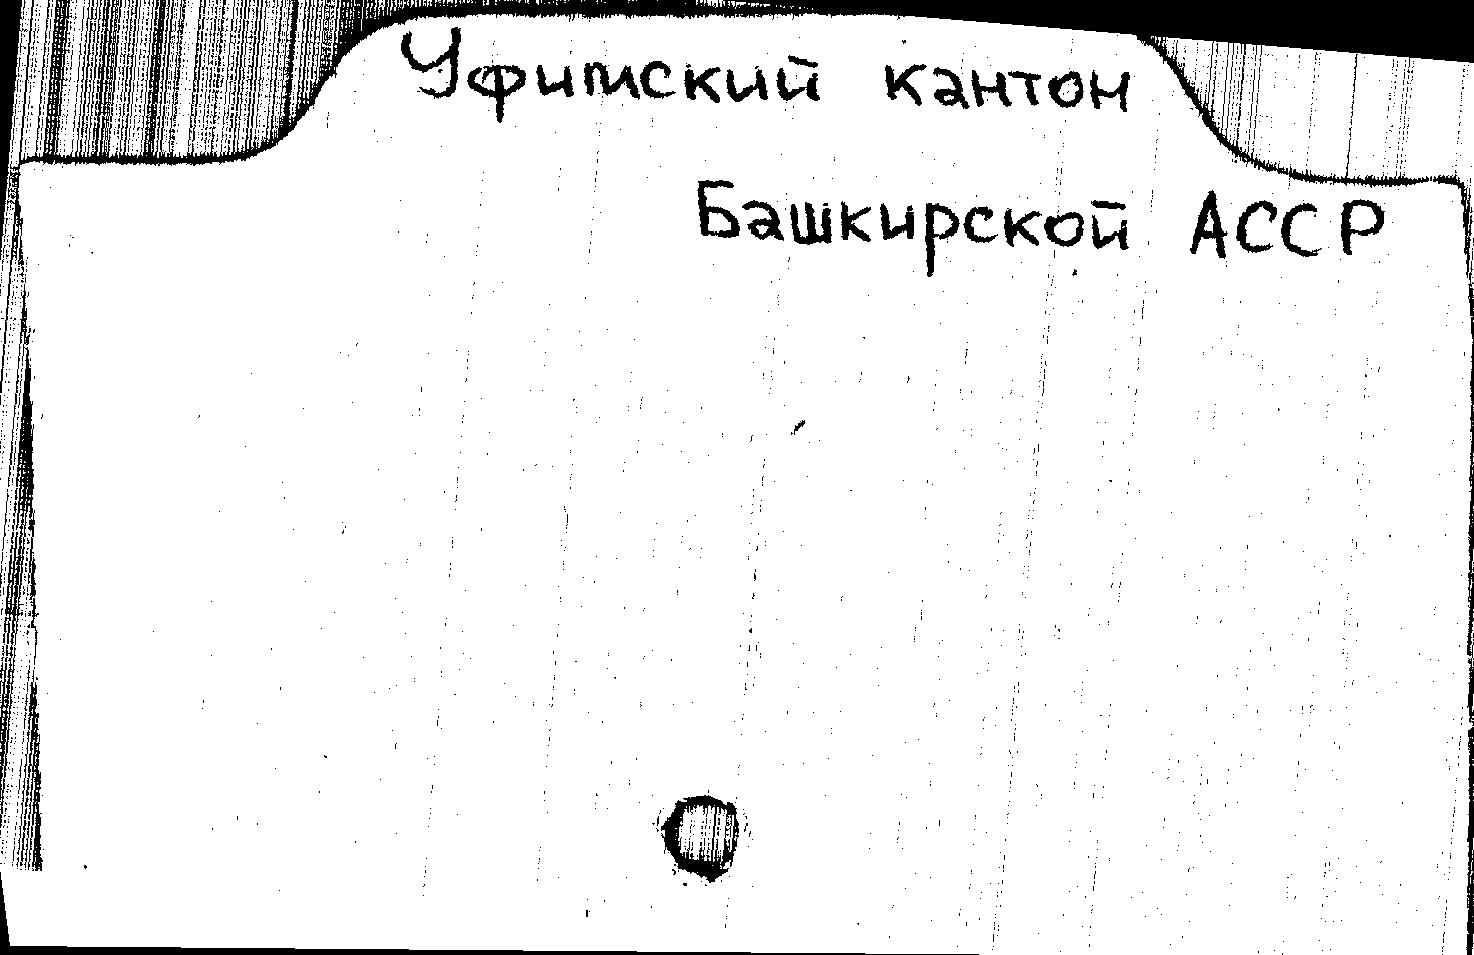 Уфимский кантон
Башкирской АССР